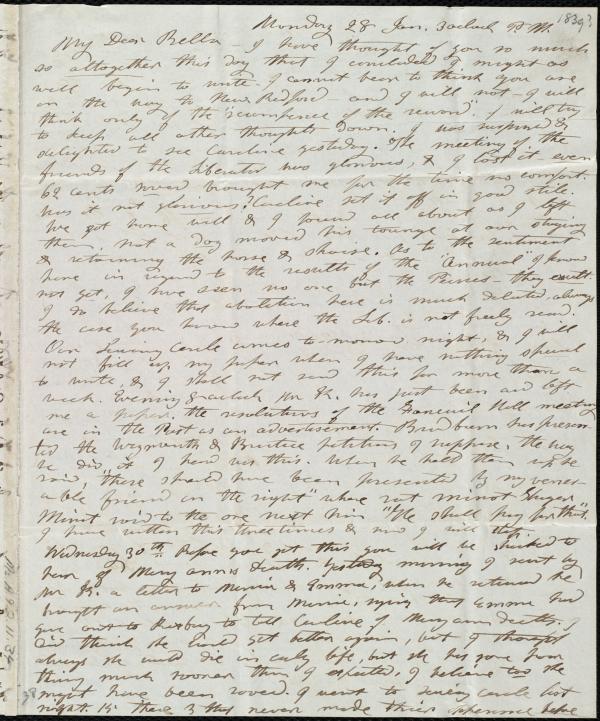 1839?
Monday 28 Jan. 3 oclock P.M.
My Dear Bella - I have thought of you so much
so altogether this day that I concluded I might as
well begin to write. I cannot bear to think you are
on the way to New Bedford - and I will not - I will
think only of the of the reward. I will try
to keep all other thoughts down. I was surprised &
delighted to see Caroline yesterday. The meeting of the
friends of the Liberator was glorious, & I lost it - even
62 cents never brought me for the time no comfort.
Was it not glorious? Caroline set it off in good stile.
We got home well & I found all about as I left
them, not a dog moved his tounge at our staying
& retaining the horse & chaise. As to the sentiment
here in regard to the results of the "Annual" I know
not yet, I have seen no one but the - they exult.
I do believe that abolition here is much diluted, always
the case you know where the Lib. is not freely read.
Our Sewing Circle comes to-morrow night, & I will
not fill up my paper when I have nothing special
to write, & I shall not send this for more than a
week. Evening 8 oclock Mr K. has just been and left
me a paper. the resolutions of the Faneuil Hall meeting
are in the Post as an advertisement. Bradburn has presen-
ted the Weymouth & Braintree petitions I suppose, the way
he did it I heard was this. When he held them up he
said, "these should have been presented by my vener-
able friend on the right" where sat minot Thayer
Minot said to the one next him "He shall pay for that".
I have written this three times & now I will stop
Wednesday 30th. Before you get this you will be shocked to
hear of Mary anns death. Yesterday morning I sent by
Mr K. a letter to & Emma, when he returned he
brought an answer from , saying that Emma had
gone out to Roxbury to tell Caroline of Mary anns death. I
did think she would get better again, but I thought
always she would die in early life, but she has gone from
thing much sooner than I expected, I believe too she
might have been saved. I went to sewing circle last
night. 15 there 3 that never made their appearance before